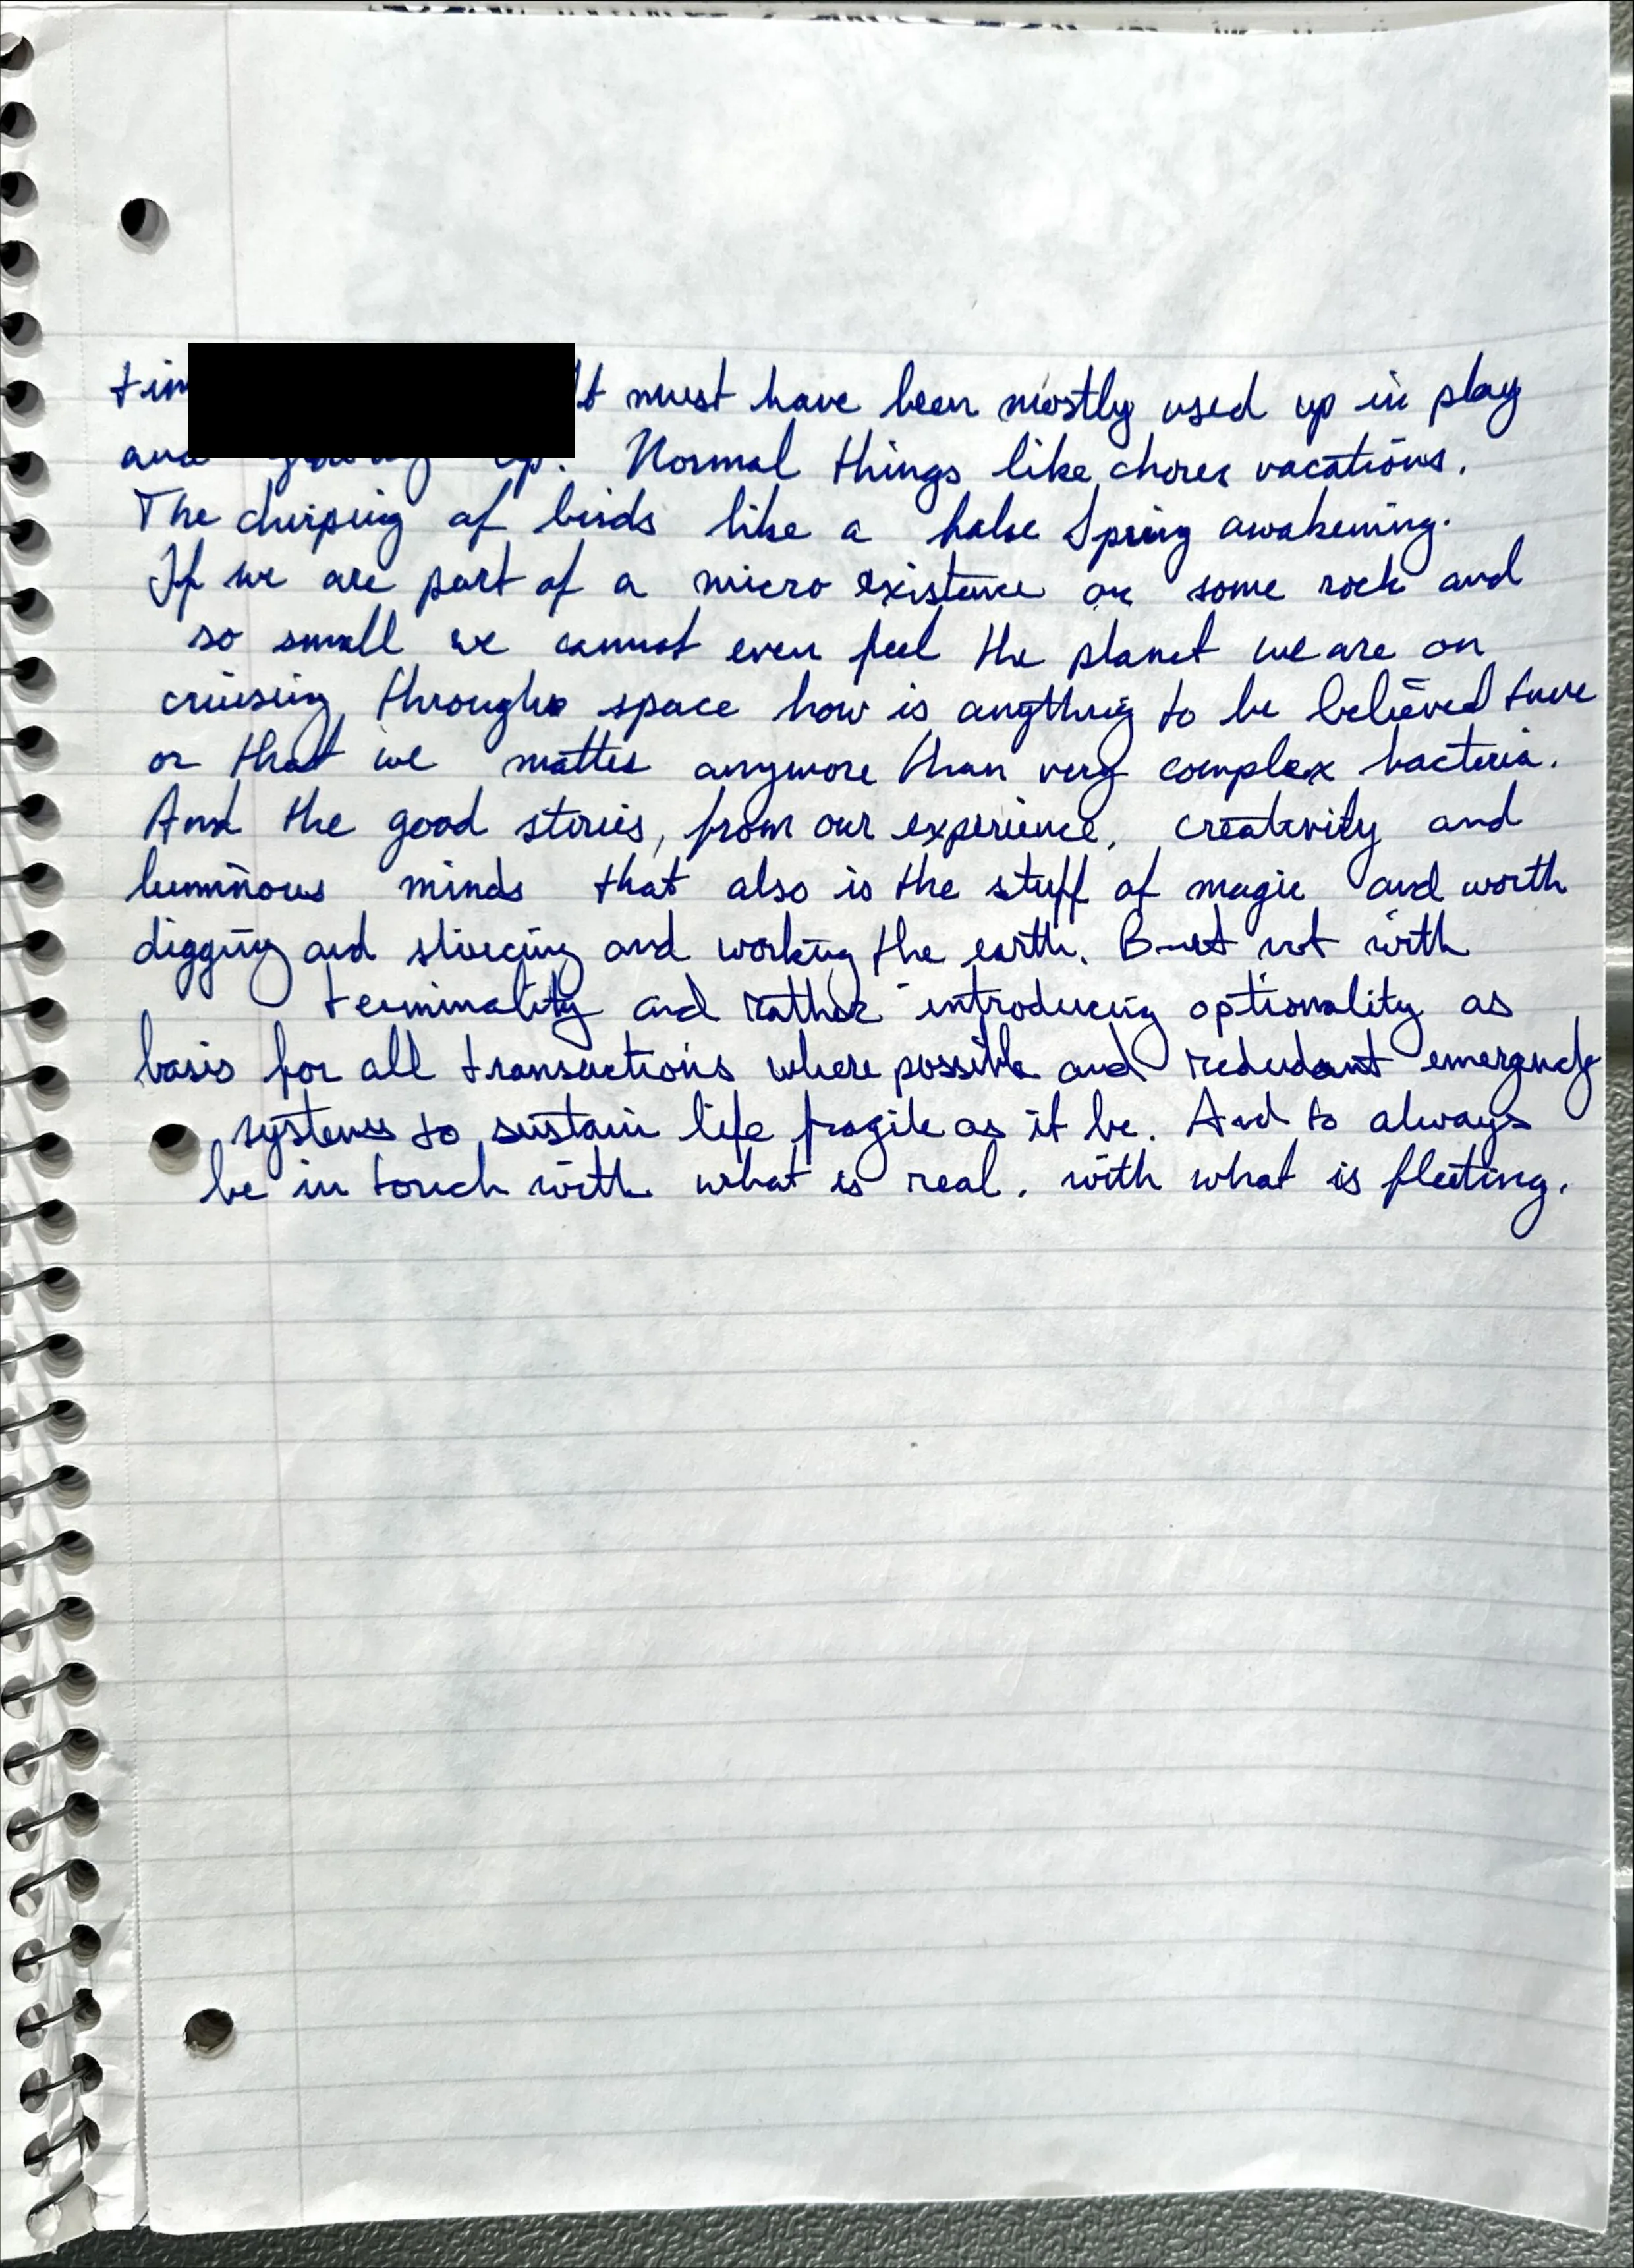 must have been mostly used up in play
and up. Normal things like chores vacations.
The chirping of birds like a false Spring awakening.
If we are part of a micro existence on some rock and
so small we cannot even feel the planet we are on
cruising through space how is anything to be believed true
or that we matter anymore than very complex bacteria.
And the good stories, from our experience, creativity and
luminous minds that also is the stuff of magic and worth
digging and and working the earth. But not with
terminality and rather introducing optionality as
basis for all transactions where possible and redudant emergency
systems to sustain life fragile as it be. And to always
be in touch with what is real. with what is fleeting.